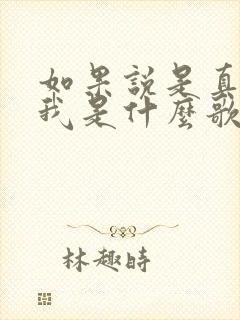 如果說是真
我是什麼歌
林趣時